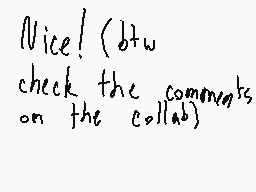 Nice! (btw
check the comments
on the collab)